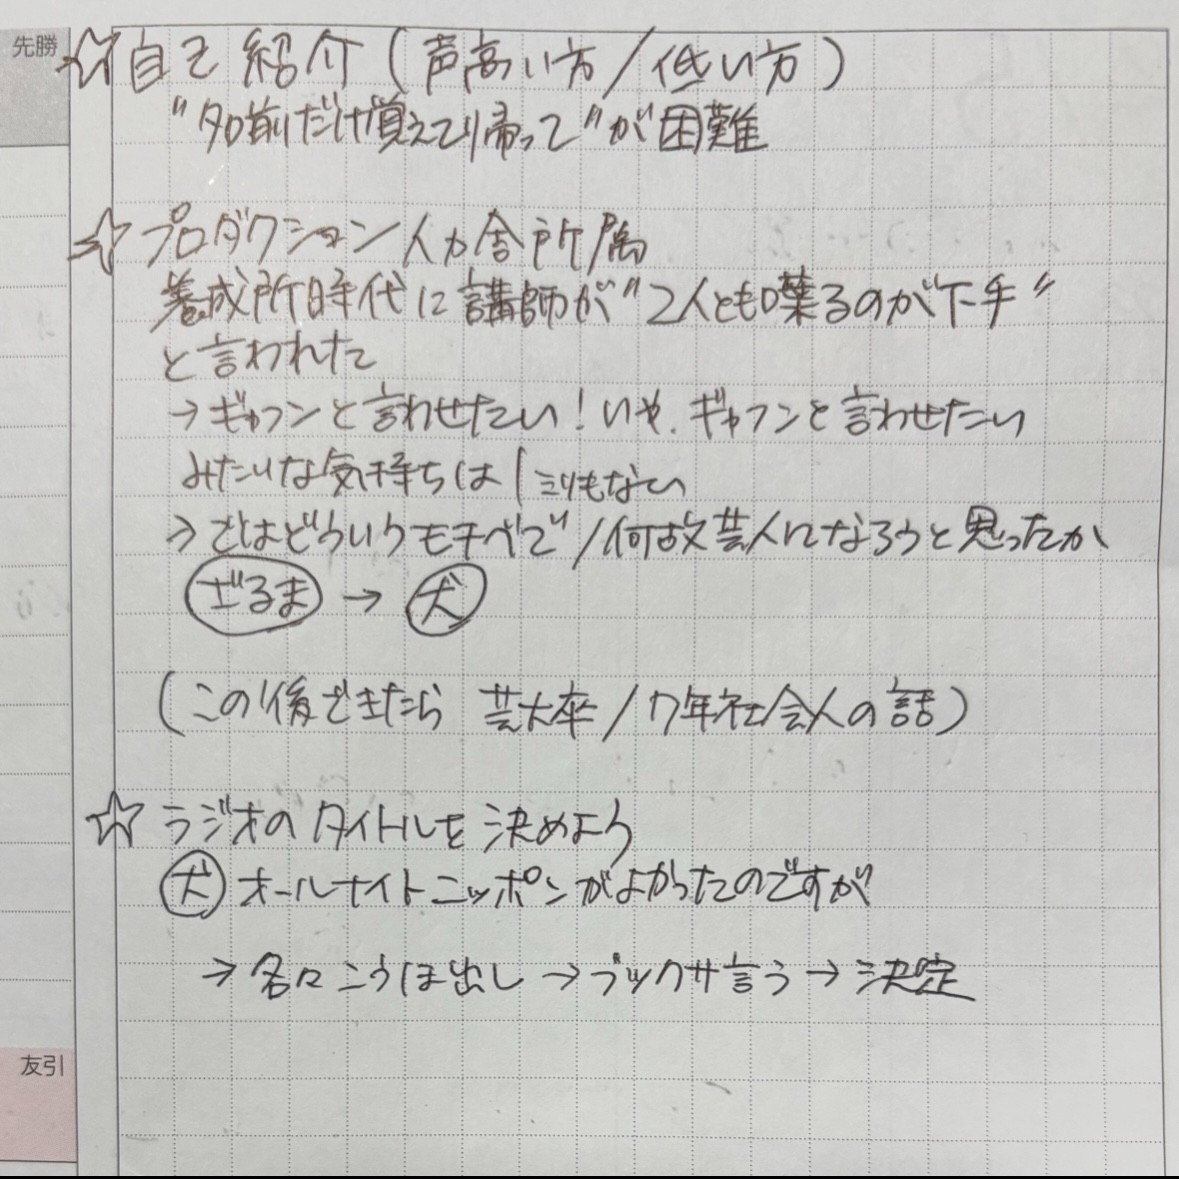 先勝
☆自己紹介(声高い方/低い方)
"名前だけ覚えて帰って"が困難
☆プロダクション人力舎所属
養成所時代に講師が"2人とも喋るのが下手"
と言われた
→ギャフンと言わせたい!いや、ギャフンと言わせたい
みたいな気持ちは1ミリもない
→ではどういうモチベで/何故芸人になろうと思ったか
ざるま→犬
(この後できたら 芸大卒/7年社会人の話)
☆ラジオのタイトルを決めよう
犬 オールナイトニッポンがよかったのですが
→各々こうほ出し→ブツクサ言う→決定
友引